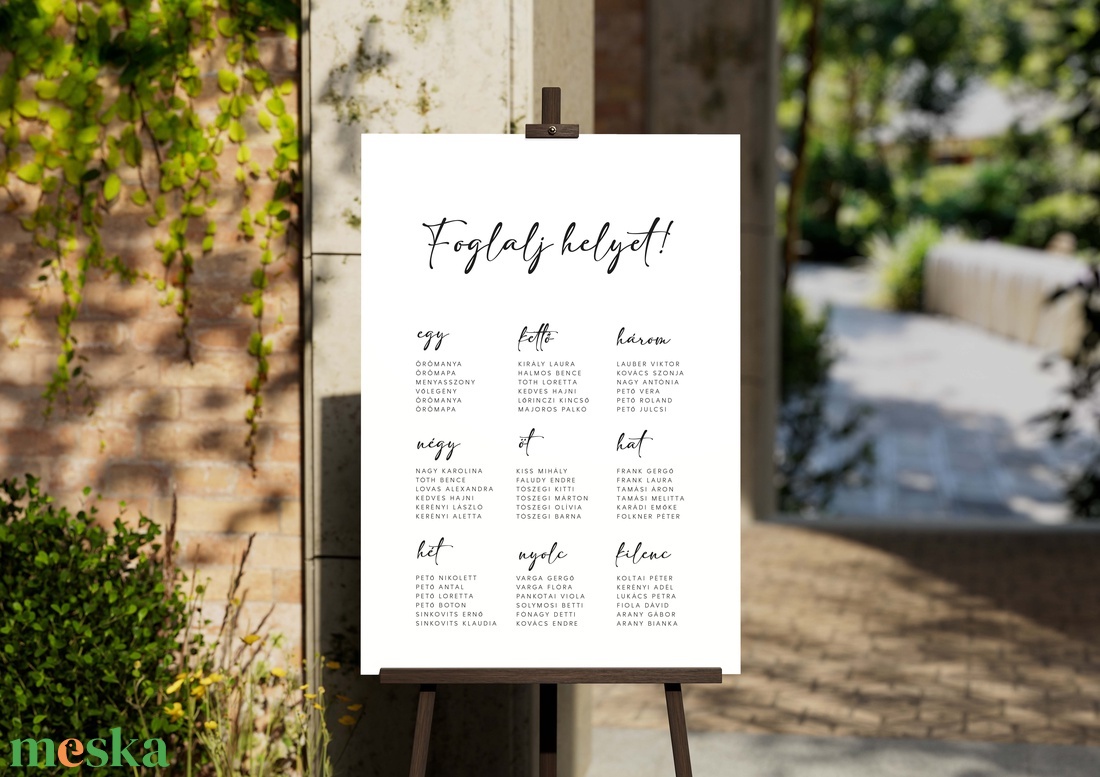 Foglalj helyet!
egy
ÖRÖMANYA
ÖRÖMAPA
MENYASSZONY
VŐLEGÉNY
ÖRÖMANYA
ÖRÖMAPA
kettő
KIRÁLY LAURA
HALMOS BENCE
TÓTH LORETTA
KEDVES HAJNI
LŐRINCZI KINCSŐ
MAJOROS PALKO
három
LAUBER VIKTOR
KOVÁCS SZONJA
NAGY ANTÓNIA
PETŐ VERA
PETŐ ROLAND
PETŐ JULCSI
négy
NAGY KAROLINA
TÓTH BENCE
LOVAS ALEXANDRA
KEDVES HAJNI
KERÉNYI LÁSZLÓ
KERÉNYI ALETTA
öt
KISS MIHÁLY
FALUDY ENDRE
TÓSZEGI KITTI
TÓSZEGI MÁRTON
TÓSZEGI OLÍVIA
TÓSZEGI BARNA
hat
FRANK GERGŐ
FRANK LAURA
TAMÁSI ÁRON
TAMÁSI MELITTA
KARÁDI EMŐKE
FOLKNER PÉTER
hét
PETŐ NIKOLETT
PETŐ ANTAL
PETŐ LORETTA
PETŐ BOTON
SINKOVITS ERNŐ
SINKOVITS KLAUDIA
nyolc
VARGA GERGŐ
VARGA FLÓRA
PANKOTAI VIOLA
SOLYMOSI BETTI
FÓNAGY DETTI
KOVÁCS ENDRE
kilenc
KOLTAI PÉTER
KERÉNYI ADÉL
LUKÁCS PETRA
FIOLA DÁVID
ARANY GÁBOR
ARANY BIANKA
meska